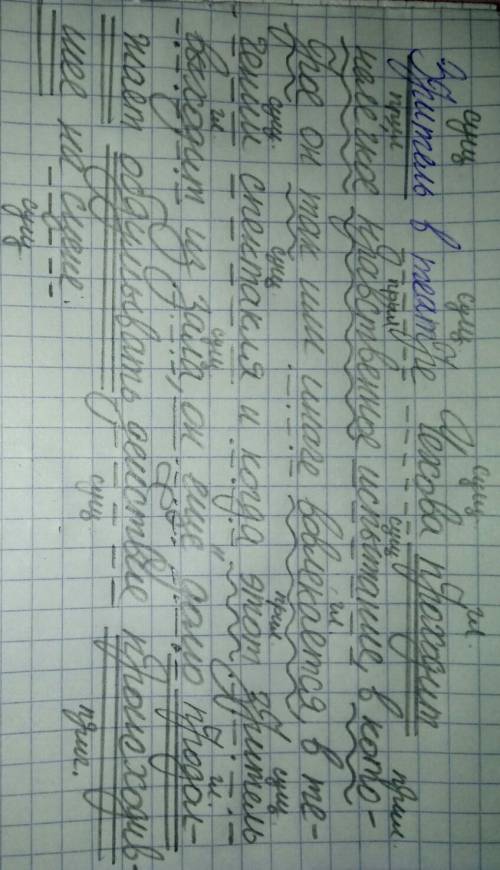 сущ сущ сущ. гл.
Зритель в театре Чехова проходит
прил прил сущ прил.
нелегкое нравственное испытание, в кото-
гл.
рое он так или иначе вовлекается, в те-
сущ. сущ. прил. сущ
чении спектакля и когда этот зритель
гл сущ гл.
выходит из зала, он еще долго продол-
жает обдумывать действие происходив-
сущ прич.
шее на сцене.
сущ